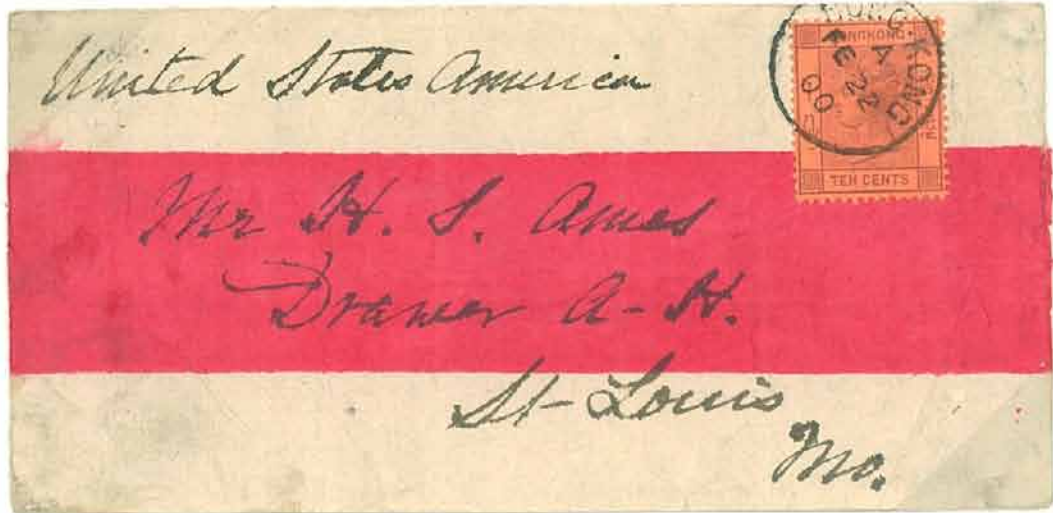 United States America
HONG·KONG
A
FE 22
00
HONGKONG
TEN CENTS
Mr H. S. Ames
Drawer A-H.
St-Louis
Mo.